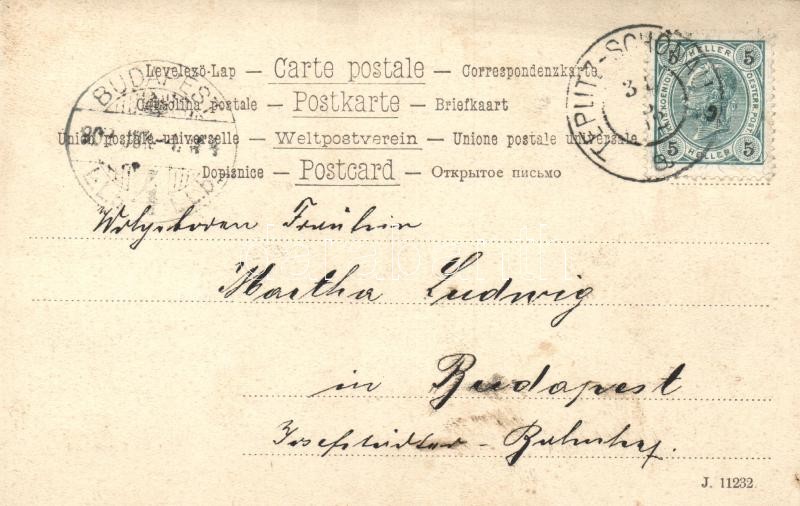 Levelező-Lap — Carte postale — Correspondenzkarte
Cartolina postale — Postkarte — Briefkaart
Union postale universelle — Weltpostverein — Unione postale universale
Dopisnice — Postcard — Открытое письмо
BUDAPEST
TEPLITZ-SCHÖNAU
5 HELLER 5
5 HELLER 5
Wolgeboren Fräulein
Martha Ludwig
in Budapest
Josefstädter - Bahnhof.
J. 11232